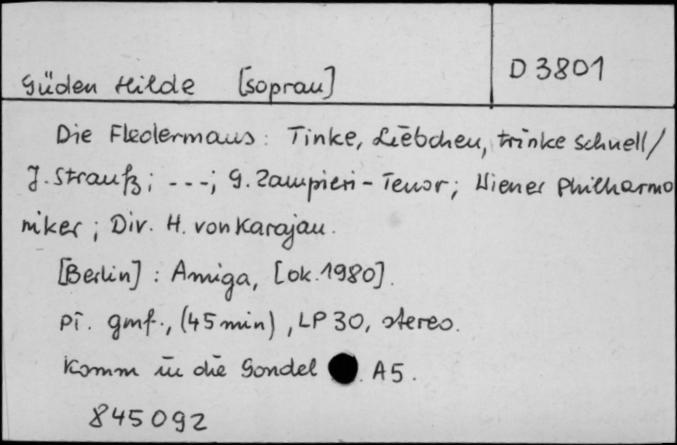 Güden Hilde [sopran]
D 3801
Die Fledermaus: Tinke, Liebchen, trinke schnell/
J. Strauß; ---; G. Zampieri - Tenor; Wiener Philharmo
niker; Dir. H. von Karajan.
[Berlin]: Amiga, [ok. 1980].
pł. gmf., (45 min), LP 30, stereo.
Komm in die Gondel . A5.
845092